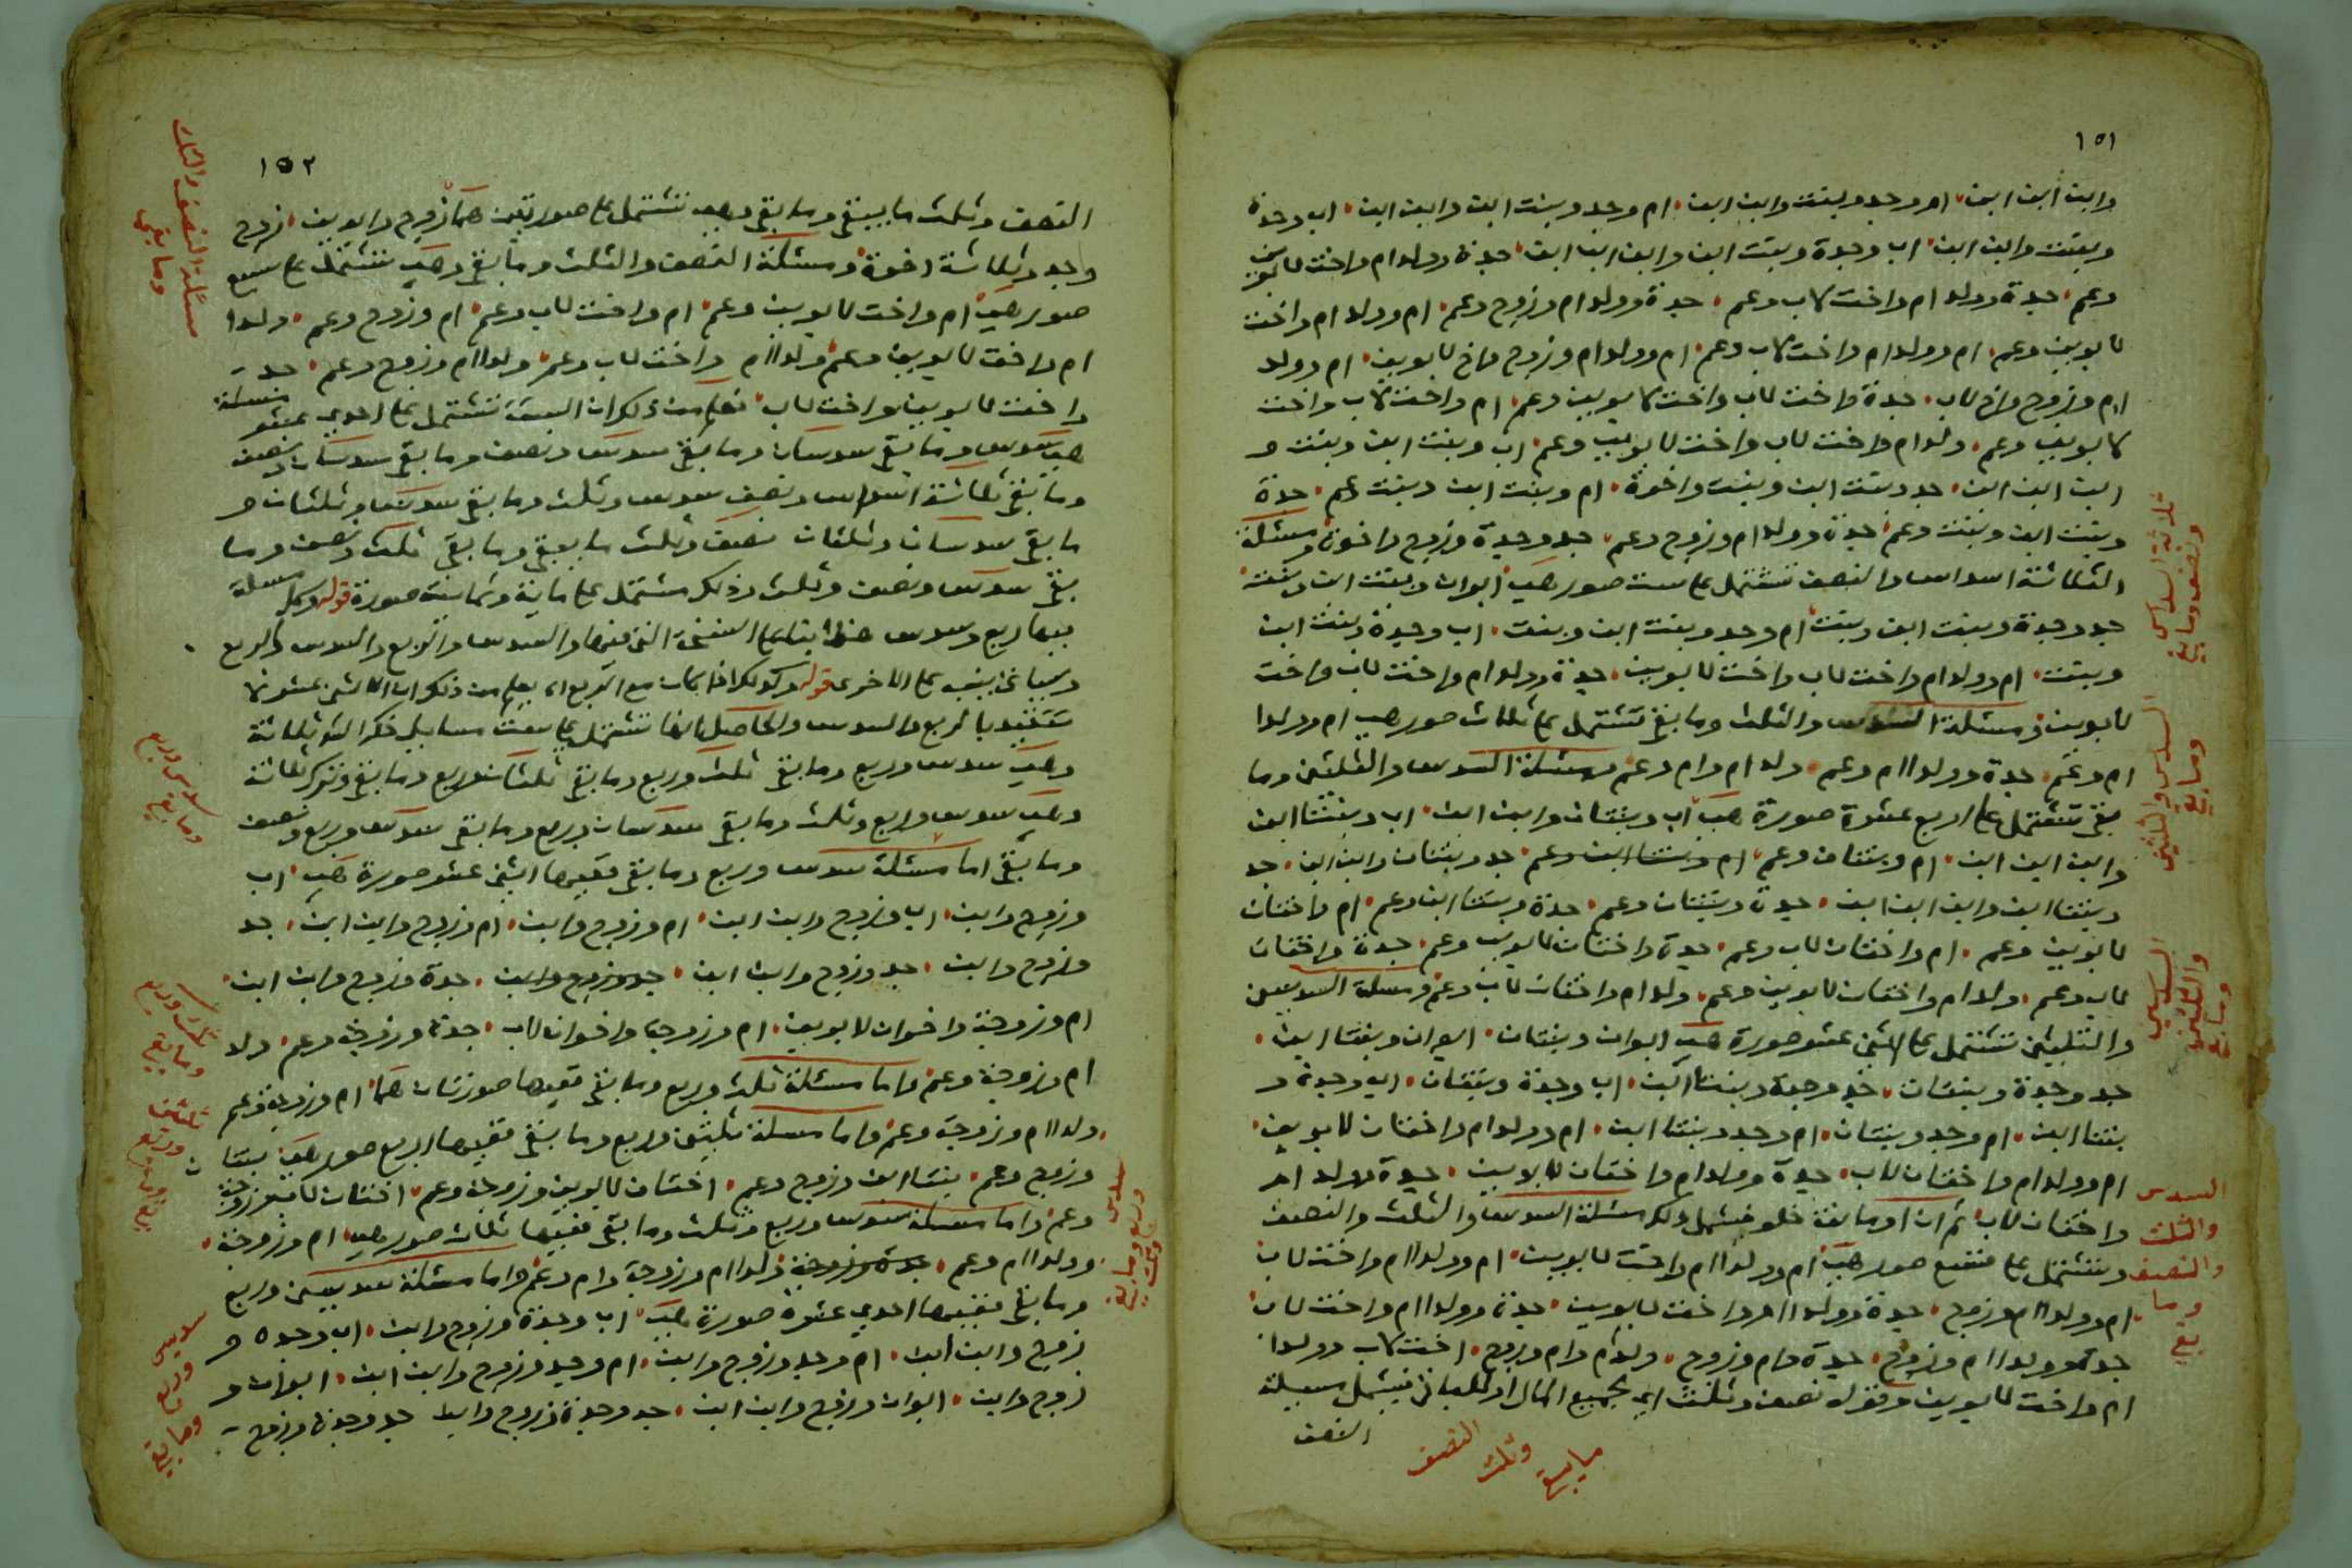 ١٥١
وابن ابن ابن ام وجد وبنت وابن ابن ام وجد وبنت ابن وابن ابن اب وجدة
وبنت وابن ابن اب وجدة وبنت ابن وابن ابن ابن جدة وولد ام واخت لابوين
وعم جدة وولد ام واخت لاب وعم جدة وولد ام وزوج وعم ام وولد ام واخت
لابوين وعم ام وولد ام واخت لاب وعم ام وولد ام وزوج واخ لابوين ام وولد
ام وزوج واخ لاب جدة واخت لاب واخت لابوين وعم ام واخت لاب واخت
لابوين وعم ولد ام واخت لاب واخت لابوين وعم اب وبنت ابن وبنت و
ابن ابن ابن جد وبنت ابن وبنت واخوة ام وبنت ابن وبنت وعم جدة
وبنت ابن وبنت وعم جدة وولد ام وزوج وعم جد وجدة وزوج واخوة ومسئلة
الثلاثة اسداس والنصف تشتمل على ست صور هي ابوان وبنت ابن وبنت
جد وجدة وبنت ابن وبنت ام وجد وبنت ابن وبنت اب وجدة وبنت ابن
وبنت ام وولد ام واخت لاب واخت لابوين جدة وولد ام واخت لاب واخت
لابوين ومسئلة السدس والثلث وما بقي تشتمل على ثلاث صور هي ام وولدا
ام وعم جدة وولدا ام وعم ولد ام وام وعم ومسئلة السدس والثلثين وما
بقي تشتمل على اربع عشرة صورة هي اب وبنتان وابن ابن اب وبنتا ابن
وابن ابن ابن ام وبنتان وعم ام وبنتا ابن وعم جد وبنتان وابن ابن جد
وبنتا ابن وابن ابن ابن جدة وبنتان وعم جدة وبنتا ابن وعم ام واختان
لابوين وعم ام واختان لاب وعم جدة واختان لابوين وعم جدة واختان
لاب وعم ولد ام واختان لابوين وعم ولد ام واختان لاب وعم ومسئلة السدسين
والثلثين تشتمل على اثني عشر صورة هي ابوان وبنتان ابوان وبنتا ابن
جد وجدة وبنتان جد وجدة وبنتا ابن اب وجدة وبنتان اب وجدة و
بنتا ابن ام وجد وبنتان ام وجد وبنتا ابن ام وولد ام واختان لابوين
ام وولد ام واختان لاب جدة وولد ام واختان لابوين جدة وولد ام
واختان لاب ثم ان او مانعة خلو فيشمل ذلك مسئلة السدس والثلث والنصف
وتشتمل على صور هي ام وولدا ام واخت لابوين ام وولدا ام واخت لاب
ام وولدا ام وزوج جدة وولدا ام واخت لابوين جدة وولدا ام واخت لاب
جدة وولدا ام وزوج جدة وام وزوج ولد ام وام وزوج اخت لاب وولدا
ام واخت لابوين وقوله نصف وثلث اي بجميع المال او ثلث ما بقي فيشمل مسئلة
النصف
ثلاثة اسداس
ونصف وما بقي
السدس والثلثين
وما بقي
السدسين
والثلثين
وما بقي
السدس
والثلث
والنصف
وما
بقي
النصف
وثلث
ما بقي
١٥٢
النصف وثلث ما يبقي وما بقي وهي تشتمل على صورتين هما زوج وابوين زوج
وجد وثلاثة اخوة ومسئلة النصف والثلث وما بقي وهي تشتمل على سبع
صور هي ام واخت لابوين وعم ام واخت لاب وعم ام وزوج وعم ولدا
ام واخت لابوين وعم ولدا ام واخت لاب وعم ولدا ام وزوج وعم جد
واخت لابوين واخت لاب فعلم من ذلك ان الستة تشتمل على احدي عشر مسئلة
هي سدس وما بقي سدسان وما بقي سدس ونصف وما بقي سدسان ونصف
وما بقي ثلاثة اسداس ونصف سدس وثلث وما بقي سدس وثلثان و
ما بقي سدسان وثلثان نصف وثلث ما يبقي وما بقي ثلث ونصف وما
بقي سدس ونصف وثلث وذلك مشتمل على ماية وثمانية صورة قوله وكل مسئلة
فيها ربع وسدس هذا بناء على النسخة التي فيها والسدس والربع والسدس والربع
وسياتي ينبه على الاخرى قوله وكذلك اذا كان مع الربع اي يعلم من ذلك ان الاثني عشر لا
تتقيد بالربع والسدس والحاصل انها تشتمل على ست مسايل ذكر الش ثلاثة
وهي سدس وربع وما بقي ثلث وربع وما بقي ثلثان وربع وما بقي وترك ثلاثة
وهي سدس وربع وثلث وما بقي سدسان وربع وما بقي سدس وربع ونصف
وما بقي اما مسئلة سدس وربع وما بقي ففيها اثني عشر صورة هي اب
وزوج وابن اب وزوج وابن ابن ام وزوج وابن ام وزوج وابن ابن جد
وزوج وابن جد وزوج وابن ابن جدة وزوج وابن جدة وزوج وابن ابن
ام وزوجة واخوان لابوين ام وزوجة واخوان لاب جدة وزوجة وعم ولد
ام وزوجة وعم واما مسئلة ثلث وربع وما بقي ففيها صورتان هما ام وزوجة وعم
ولدا ام وزوجة وعم واما مسئلة ثلثين وربع وما بقي ففيها اربع صور هي بنتان
وزوج وعم بنتا ابن وزوج وعم اختان لابوين وزوجة وعم اختان لاب وزوجة
وعم واما مسئلة سدس وربع وثلث وما بقي ففيها ثلاث صور هي ام وزوجة
وولدا ام وعم جدة وزوجة ولدا ام وزوجة وام وعم واما مسئلة سدسين وربع
وما بقي ففيها احدي عشرة صورة هي اب وجدة وزوج وابن اب وجدة و
زوج وابن ابن ام وجد وزوج وابن ام وجد وزوج وابن ابن ابوان و
زوج وابن ابوان وزوج وابن ابن جد وجدة وزوج وابن جد وجدة وزوج
مسئلة النصف والثلث
وما بقي
سدس وربع
وما بقي
ثلث وربع
وما بقي
ثلثين
وربع
وما بقي
سدس
وربع وثلث
وما بقي
سدسين
وربع
وما بقي